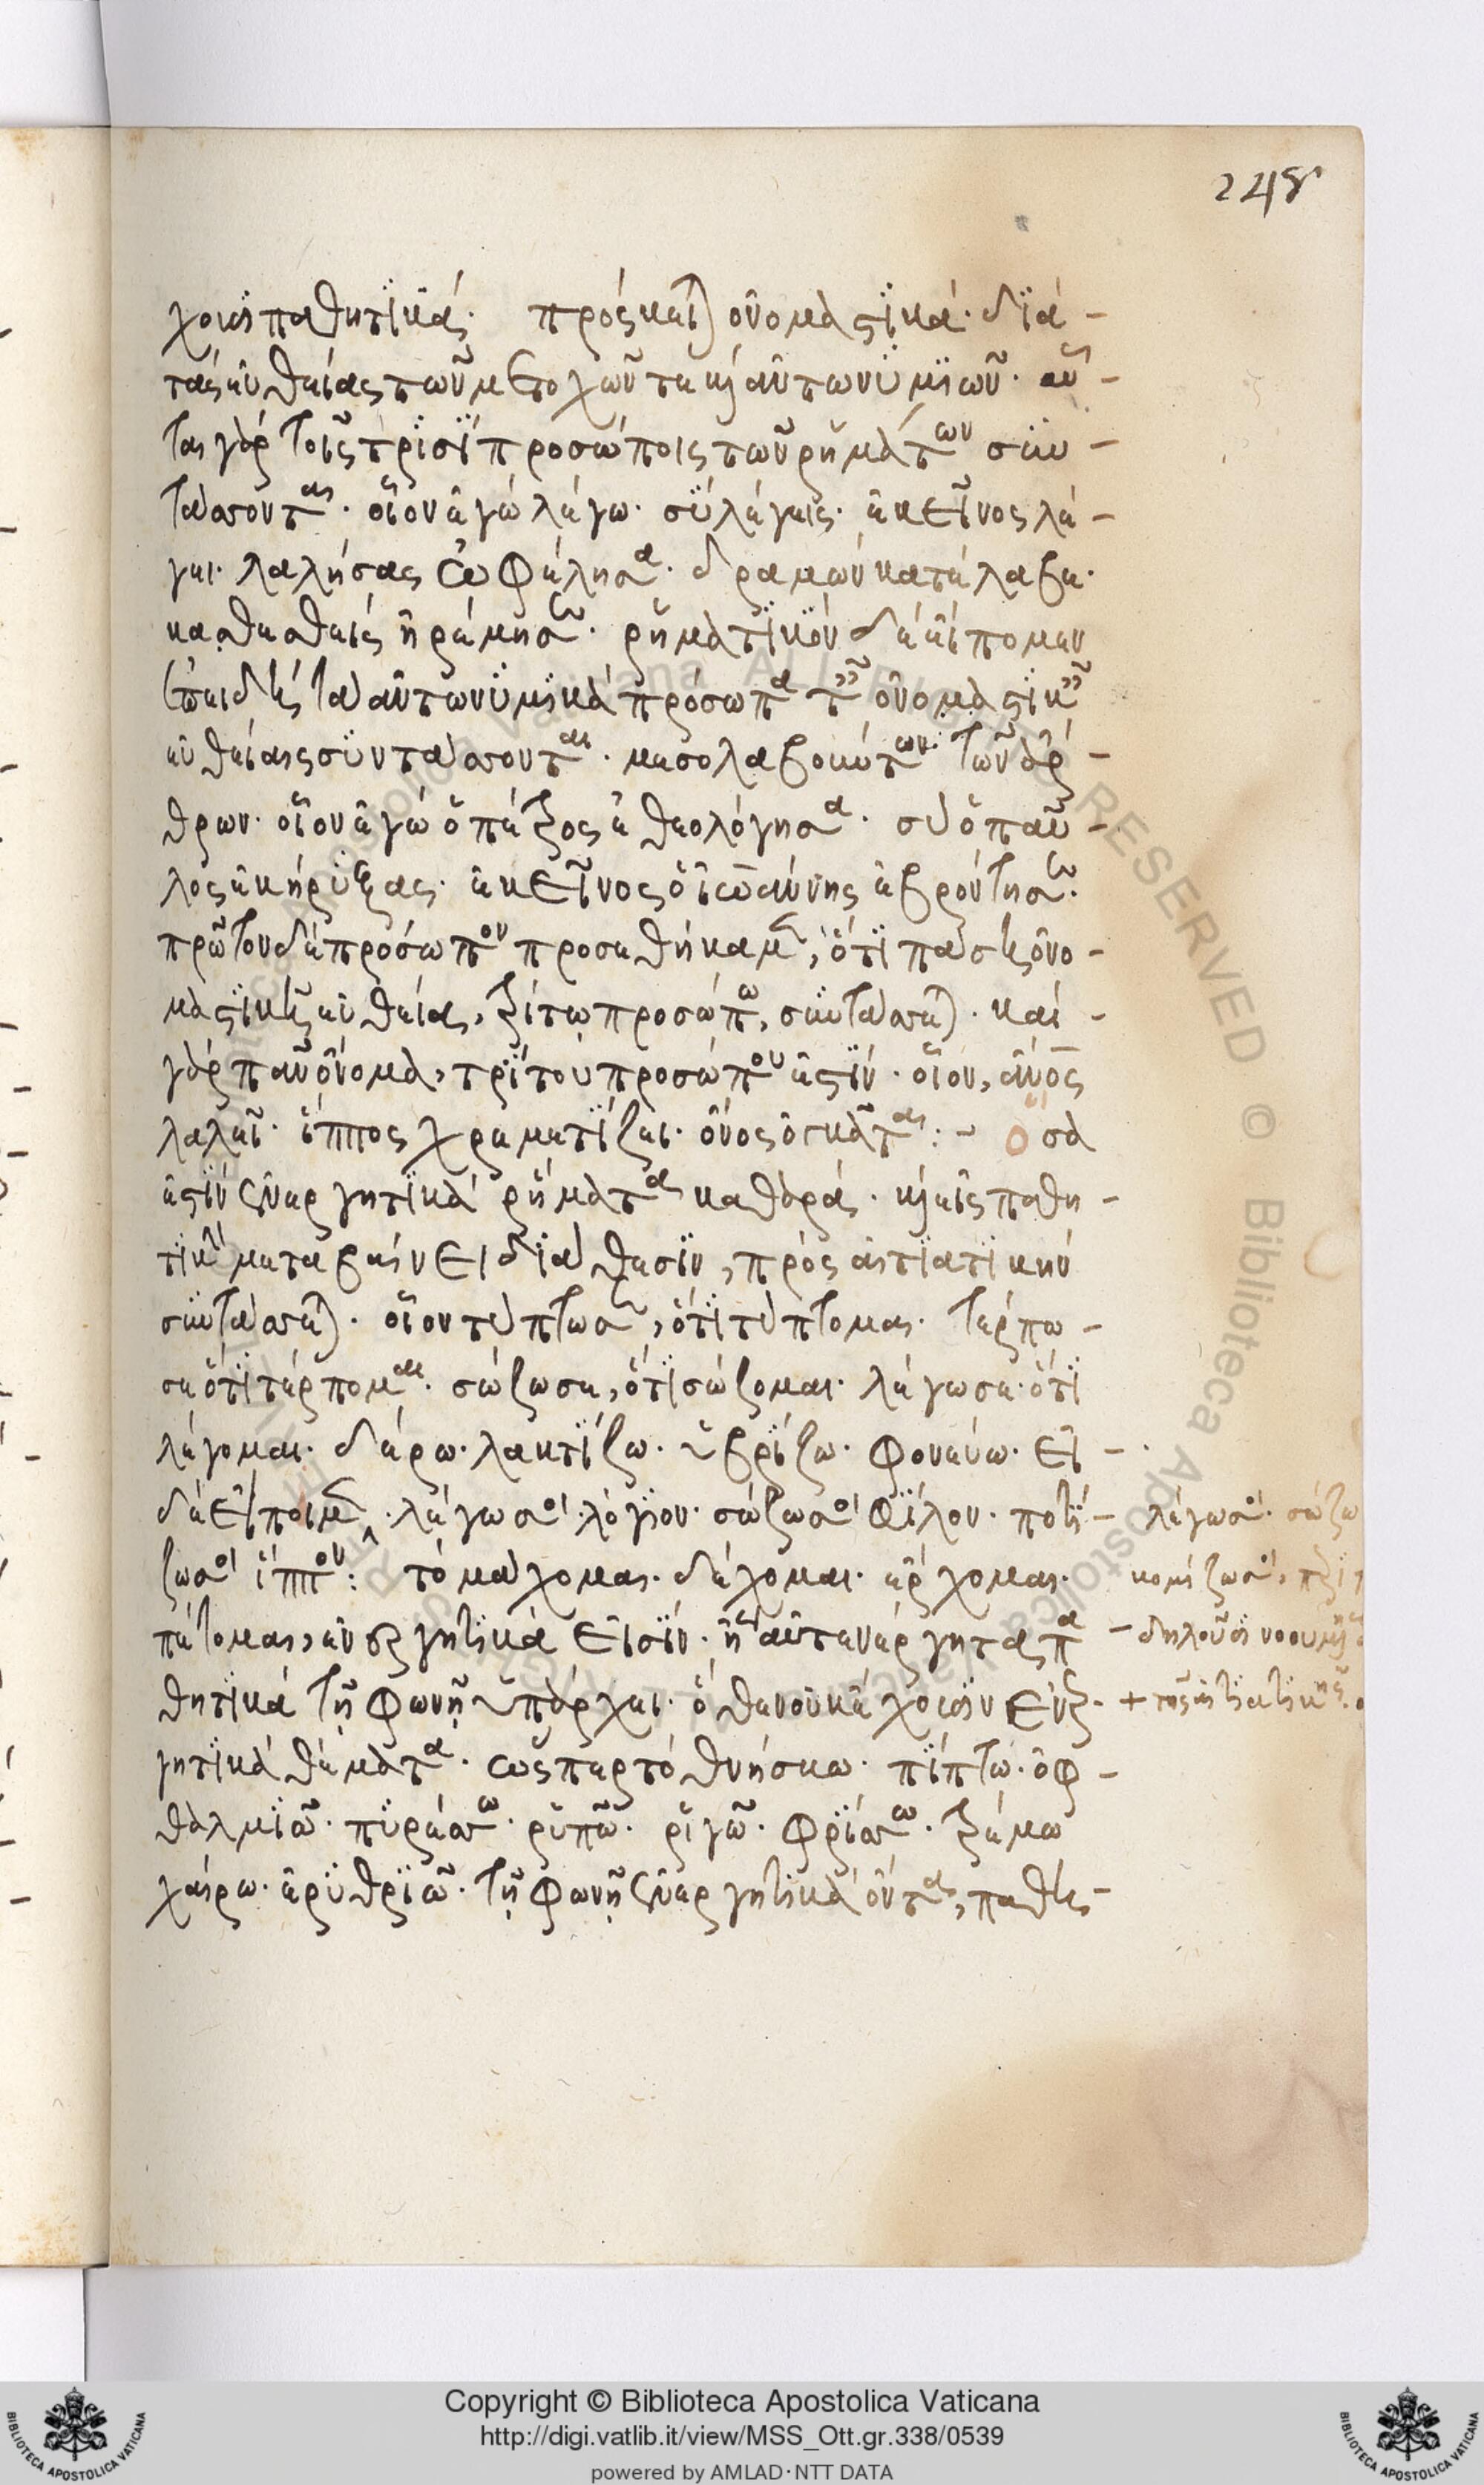 248
χουσι παθητικά. πρόσκειται ὀνομαστικά. διὰ
τὰς εὐθείας τῶν μετοχῶν τε καὶ ἀντωνυμιῶν. αὗ
ται γὰρ τοῖς τρισὶ προσώποις τῶν ῥημάτων συν
τάσσονται. οἷον ἐγὼ λέγω. σὺ λέγεις. ἐκεῖνος λέ
γει. λαλήσας ὠφέλησα. δραμὼν κατέλαβε.
καθεσθεὶς ἠρέμησεν. ῥηματικὸν δὲ εἴπομεν
ἐπειδὴ τὰ ἀντωνυμικὰ πρόσωπα ταῖς ὀνομαστικαῖς
εὐθείαις συντάσσονται. μεσολαβούντων τῶν ἄρ
θρων. οἷον ἐγὼ ὁ πέτρος ἐθεολόγησα. σὺ ὁ παῦ
λος ἐκήρυξας. ἐκεῖνος ὁ ἰωάννης ἐβρόντησεν.
πρῶτον δὲ πρόσωπον προσεθήκαμεν, ὅτι πᾶσα ὀνο
μαστικὴ εὐθεία, τρίτῳ προσώπῳ, συντάσσεται. καὶ
γὰρ πᾶν ὄνομα, τρίτου προσώπου ἐστίν. οἷον, ἄνος
λαλεῖ. ἵππος χρεμετίζει. ὄνος ὀγκᾶται: - ὅσα
ἐστὶν ἐνεργητικὰ ῥήματα καθαρά. καὶ εἰς παθη
τικὴν μεταβαίνει διάθεσιν, πρὸς αἰτιατικὴν
συντάσσεται. οἷον τύπτω σε, ὅτι τύπτομαι. τέρπω
σε ὅτι τέρπομαι. σώζω σε, ὅτι σώζομαι. λέγω σε. ὅτι
λέγομαι. δέρω. λακτίζω. ὑβρίζω. φονεύω. εἰ
δὲ εἴποιμεν. λέγω σοι λόγιον. σώζω σοι φίλον. ποτί
ζω σοι ἵππον: τὸ μάχομαι. δέχομαι. ἔρχομαι.
πέτομαι, ἐνεργητικά εἰσιν. ἢ αὐτενέργητα πα
θητικὰ τῇ φωνῇ ὑπάρχει. ὅθεν οὐκ ἔχουσιν ἐνερ
γητικὰ θέματα. ὥσπερ τὸ θνήσκω. πίπτω. ὀφ
θαλμιῶ. πυρέσσω. ῥυπῶ. ῥιγῶ. φρίσσω. τρέμω
χαίρω. ἐρυθριῶ. τῇ φωνῇ ἐνεργητικὰ ὄντα, πάθη
λέγω σοι. σώζω
κομίζω σοι,
δηλοῦσι
+ τῆς αἰτιατικῆς.
Copyright © Biblioteca Apostolica Vaticana
http://digi.vatlib.it/view/MSS_Ott.gr.338/0539
powered by AMLAD·NTT DATA
BIBLIOTECA APOSTOLICA VATICANA
BIBLIOTECA APOSTOLICA VATICANA